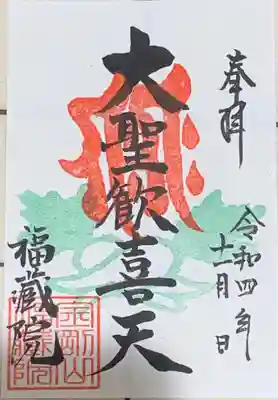 奉拝
令和四年
十一月 日
大聖歓喜天
福蔵院